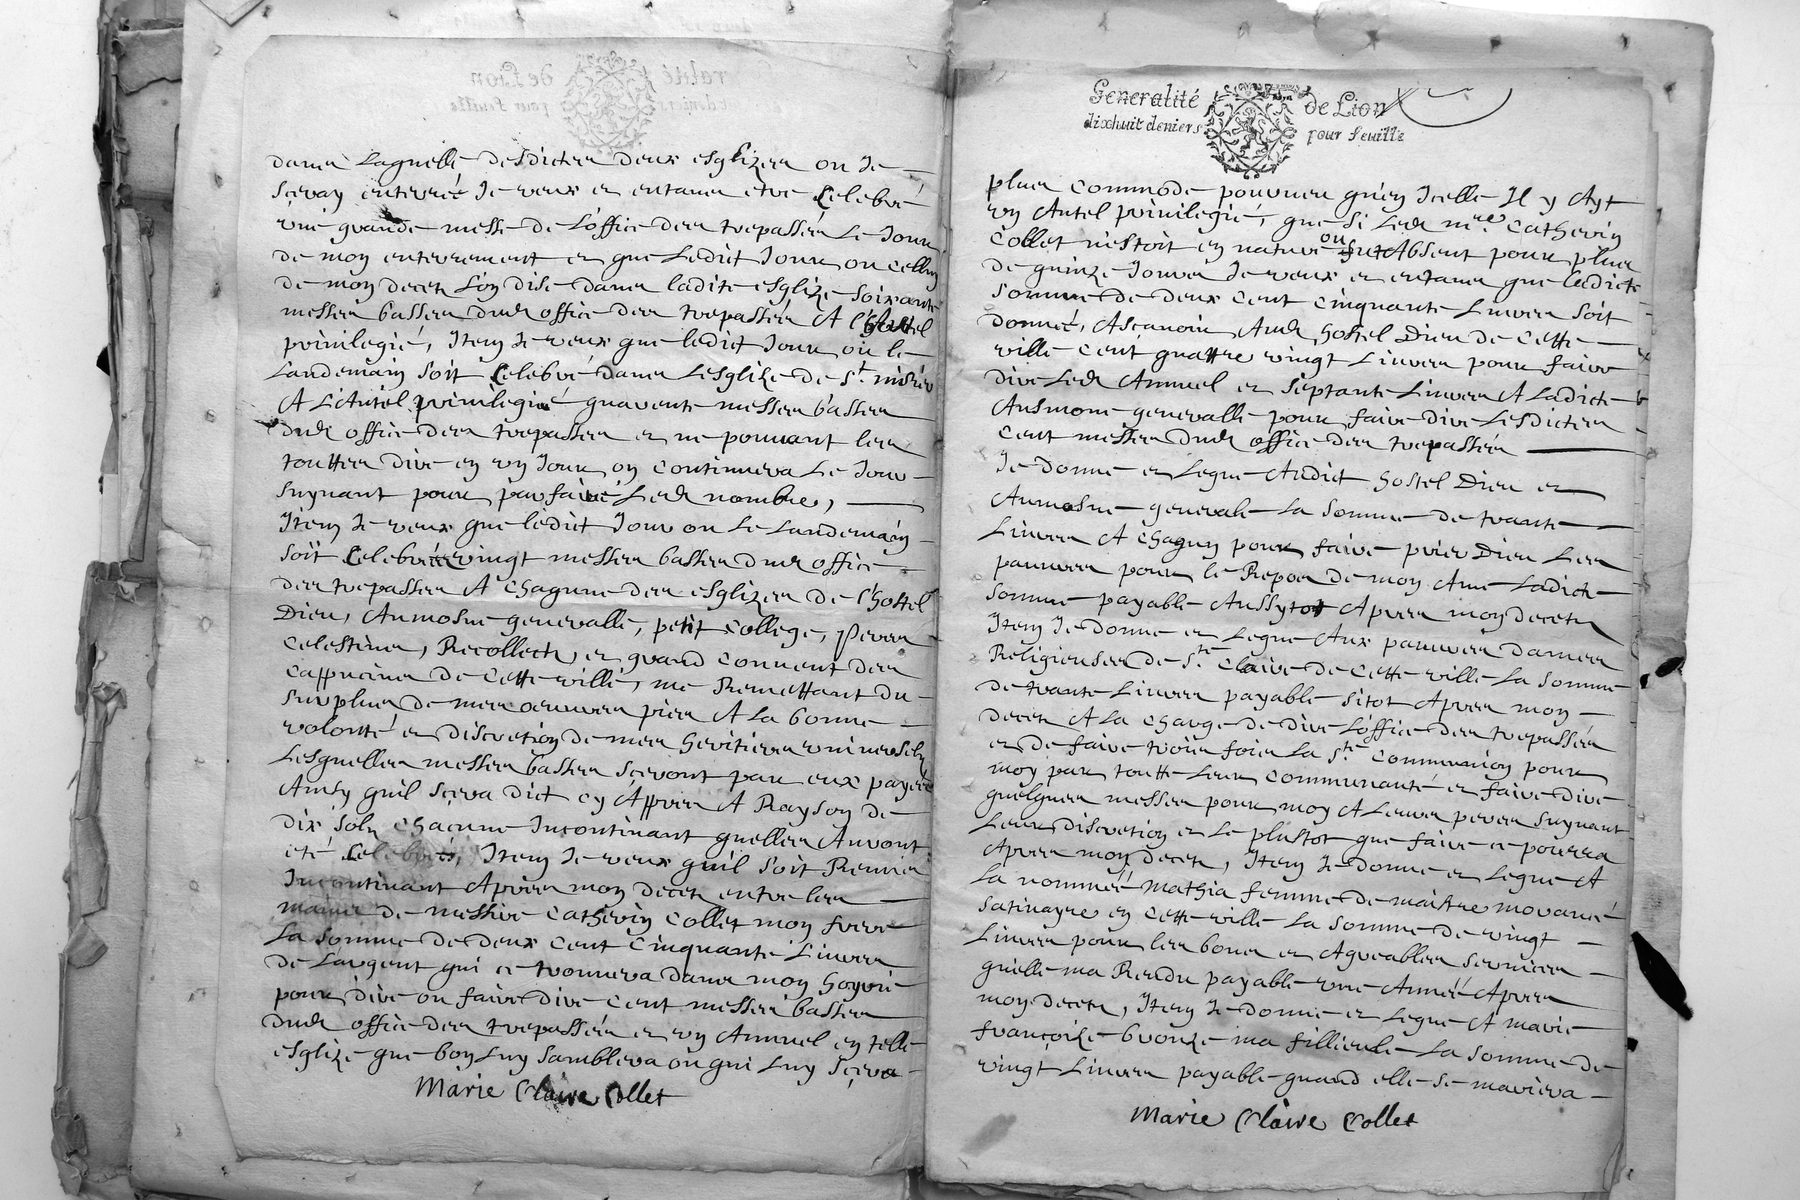 dans laquelle desdictes deux esglizes ou Je
seray enterrée Je veux et entans etre Celebré
une grande messe de L'office des trepassés Le Jour
de mon enterrement et que Ledict Jour ou celluy
de mon deces L'on dise dans ladite esglize soixante
messes basses dud office des trepassés A l'Autel
privilegié, Item Je veux que ledict Jour ou le
Landemain soit Celebré dans L'esglize de st. nisier
A L'Autel privilegié quarente messes basses
dud office des trepasses et ne pouvant les
touttes dire en un Jour on continuera Le Jour
suyvant pour parfaire Led nombre,
Item Je veux que ledict Jour ou Le Landemain
soit Celebré vingt messes basses dud office
des trepasses A chaqune des esglizes de l'hostel
Dieu, Aumosne generalle, petit college, peres
celestins, Recollects, et grand couvent des
cappucins de cette ville, me Remettant du
surplus de mes oeuvres pies A La bonne
volonté et discretion de mes heritiers universels
Lesquelles messes basses seront par eux payées
Ainsy quil sera dict cy Appres A Rayson de
dix sols chacune Incontinant quelles Auront
eté Celebrés, Item Je veux quil soit Remis
Incontinant Apres mon deces entre les
mains de messire Catherin Collet mon frere
La somme de deux cent cinquante Livres
de L'argent qui ce trouvera dans mon hoyrie
pour dire ou faire dire cent messes basses
dud office des trepassés et un Annuel en telle
esglize que bon Luy samblera ou qui Luy sera
Marie Claire Collet
Generalité de Lion
dixhuit deniers pour feuille
plus commode pourveu qu'en Icelle Il y Ayt
un Autel privilegié, que si Led mre Catherin
Collet n'estoit en nature ou fut Absent pour plus
de quinze Jours Je veux et entans que ladicte
somme de deux cent cinquante Livres soit
donneé, Ascavoir Aud hostel Dieu de cette
ville cent quattre vingt Livres pour faire
dire Led Annuel et septante Livres A Ladicte
Aumone generalle pour faire dire Lesdictes
cent messes dud office des trepassés
Je donne et Legue Audict hostel Dieu et
Aumosne generale La somme de trante
Livres A chaqun pour faire prier Dieu Les
pauvres pour le Repos de mon Ame Ladicte
somme payable Aussytot Apres mon deces
Item Je donne et Legue Aux pauvres dames
Religieuses de ste Claire de cette ville La somme
de trante Livres payable sitot Apres mon
deces A La charge de dire L'office des trepassés
et de faire trois fois La ste communion pour
moy par toutte Leur communauté et faire dire
quelques messes pour moy A Leurs peres suyvant
Leur discretion et Le plustot que faire ce pourra
Apres mon deces, Item Je donne et Legue A
La nommée mathia femme de maistre
satinayre en cette ville La somme de vingt
Livres pour les bons et Agreables services
quelle ma Rendu payable une Année Apres
mon deces, Item Je donne et Legue A marie
francoize bronze ma fillieule La somme de
vingt Livres payable quand elle se mariera
Marie Claire Collet